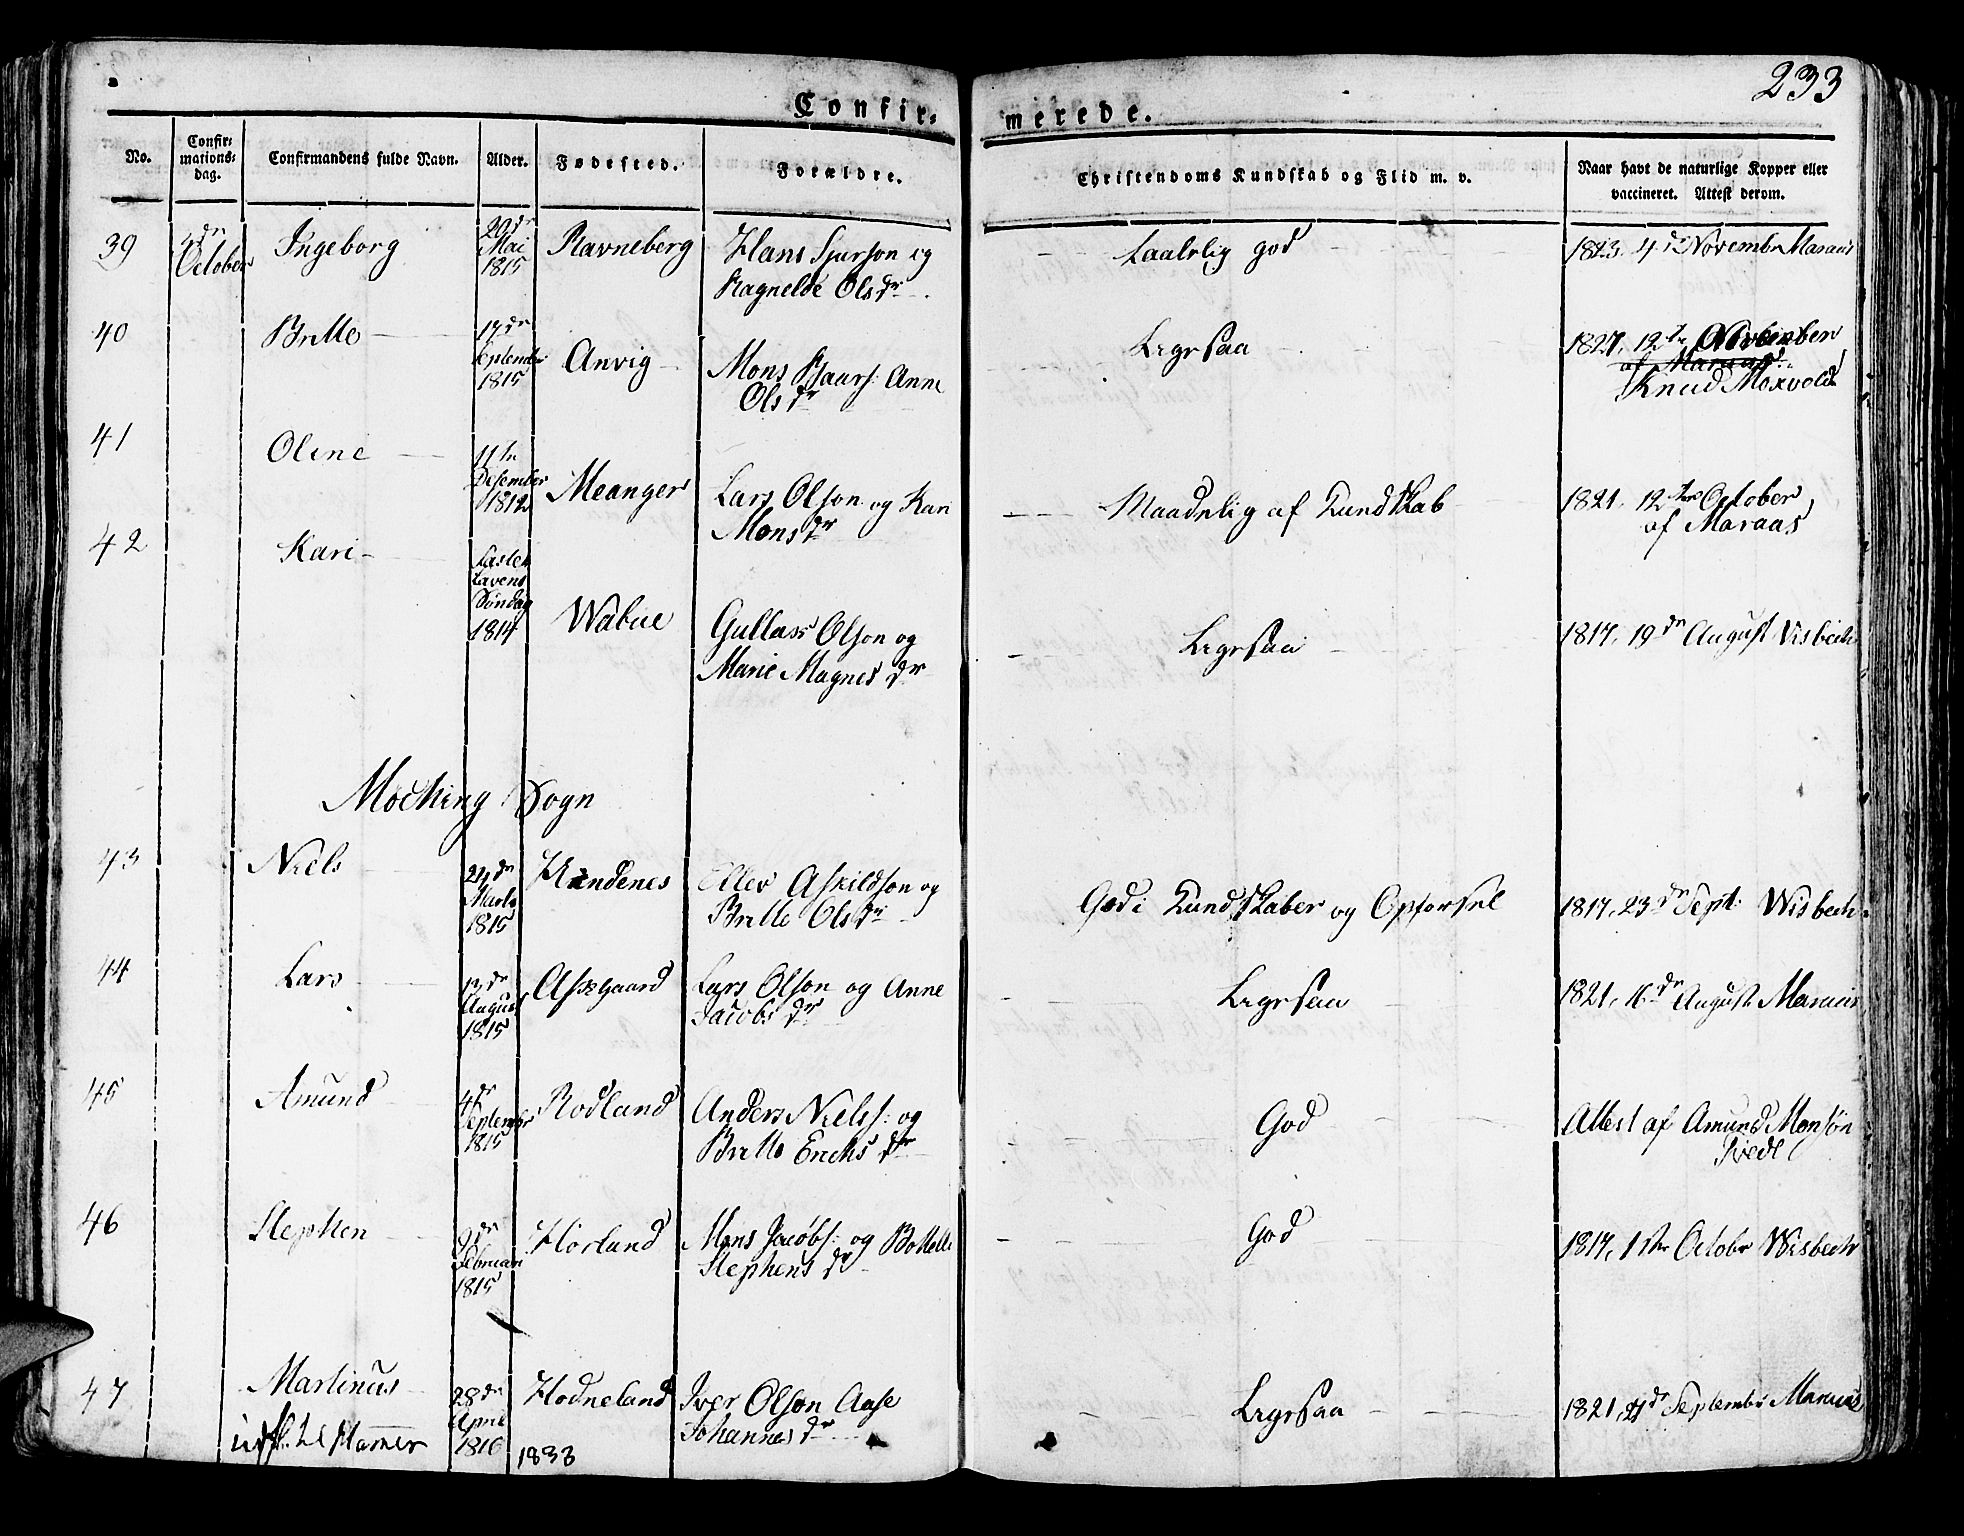 233
Confir- merede.
No.
Confir-
mations-
dag.
Confirmandens fulde Navn.
Alder.
Fødested.
Forældre.
Christendoms Kundskab og Flid m. v.
Naar havt de naturlige Kopper eller
vaccineret. Attest derom.
39 October Ingeborg 29de Mai 1815 Ravneberg Hans Sjurson og
Ragnelde Olsdr
Taalelig god
1823, 4de Novembr Maraas
40 Britte 17de September 1815 Anvig Mons Anne
Olsdr
Ligesaa
1827, 12te November
af Maraas
Knud Moxvold
41 Oline 11te Desember 1812 Meanger Lars Olson og Kari
Monsdr
Maadelig af Kundskab
1821, 12te October
af Maraas
42 Kari Faste-
lavens
Søndag
1814 Wabue Gullass Olson og
Marie Magnesdr
Ligesaa
1817, 19de August Visbech
Mocking Sogn
43 Niels 24de Marts 1815 Kundenes Eller Askildson og
Britte Olsdr
God i Kundskaber og Opførsel
1817, 23de Sept. Wisbech
44 Lars 13de August 1815 Assgaard Lars Olson og Anne
Jacobsdr
Ligesaa
1821, 16de August Maraas
45 Amund 4de September 1815 Rodland Anders Nielss: og
Britte Erichsdr
God
Attest af Amund Monsøn
Tvedt
46 Stephen 9de Februari 1815 Horland Mons Jacobs: og Bottelle
Stephensdr
God
1817, 1ste Octobr Wisbech
47 Martinus 28de April 1816 Hodneland Iver Olson Aase
Johannesdr
Ligesaa
1821, 21de Septembr Maraas
udfl. til Hammer 1833